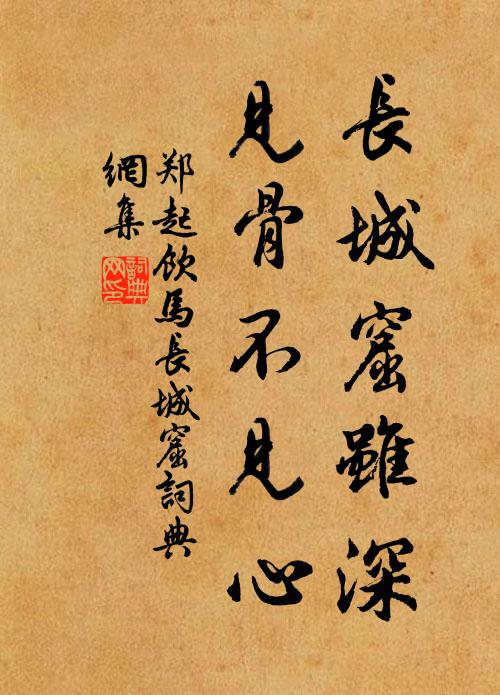 長城窟雖深
見骨不見心
郑起飲馬長城窟詞典
網集
詞典
网印